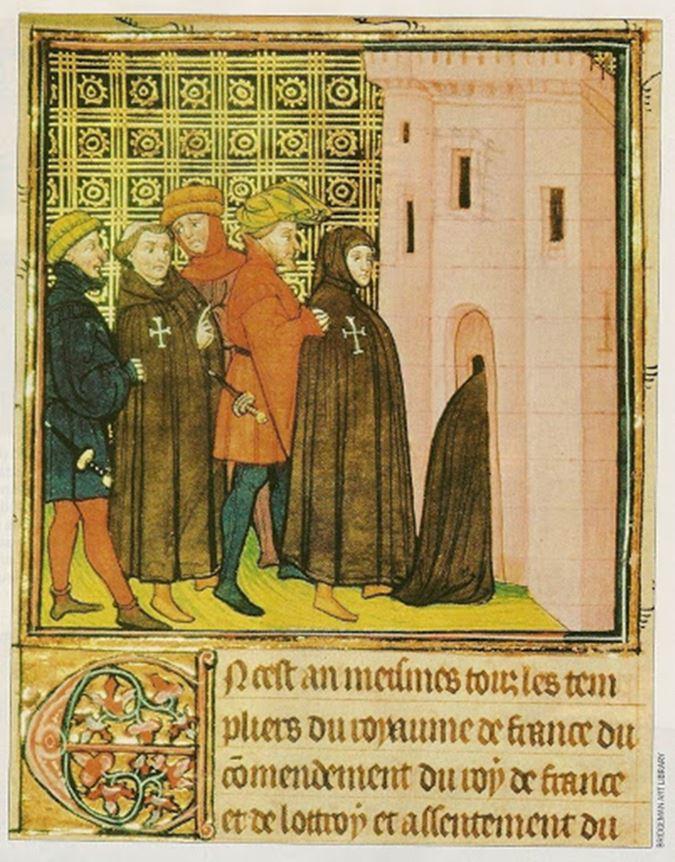 En cest an meismes touz les tem
pliers du royaume de france du
cōmendement du roy de france
et de lottroy et assentement du
BRIDGEMAN ART LIBRARY